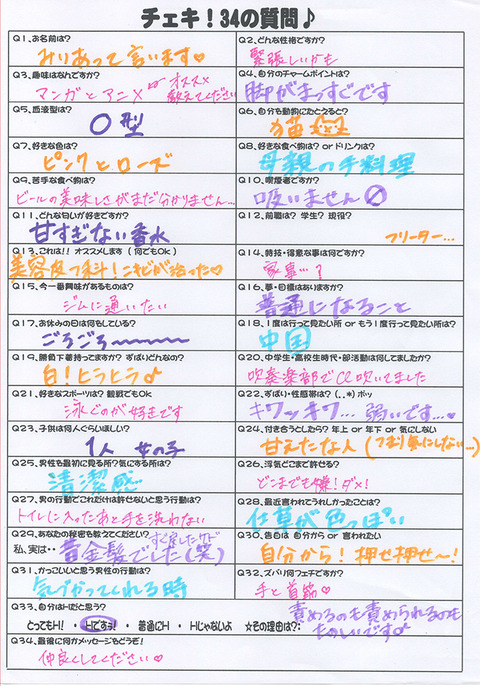 チェキ！34の質問♪
Q1、お名前は？
みりあって言います♡
Q2、どんな性格ですか？
緊張しいかも
Q3、趣味はなんですか？
マンガとアニメ
オススメ
教えてください
Q4、自分のチャームポイントは？
脚がまっすぐです
Q5、血液型は？
O型
Q6、自分も動物にたとえると？
猫
Q7、好きな色は？
ピンクとローズ
Q8、好きな食べ物は？ or ドリンクは？
母親の手料理
Q9、苦手な食べ物は？
ビールの美味しさがまだ分かりません…
Q10、喫煙者ですか？
吸いません
Q11、どんな匂いが好きですか？
甘すぎない香水
Q12、前職は？ 学生？ 現役？
フリーター…
Q13、これは！！ オススメします （何でもOk）
美容皮フ科！ニキビが治った♡
Q14、特技・得意な事は何ですか？
家事…？
Q15、今一番興味があるものは？
ジムに通いたい
Q16、夢・目標はありますか？
普通になること
Q17、お休みの日は何をしている？
ごろごろ〜〜〜〜
Q18、1度は行って見たい所 or もう1度行って見たい所は？
中国
Q19、勝負下着持ってますか？ ずばいどんなの？
白！ヒラヒラ♪
Q20、中学生・高校生時代・部活動は何してましたか？
吹奏楽部でCL吹いてました
Q21、好きなスポーツは？ 観戦でもOk
泳ぐのが好きです
Q22、ずばい・性感帯は？（．．*）ポッ
キワッキワ…弱いです…♡
Q23、子供は何人ぐらいほしい？
1人 女の子
Q24、付き合うとしたら？ 年上 or 年下 or 気にしない
甘えたな人（つまり気にしない…）
Q25、男性も最初に見る所？気にする所は？
清潔感
Q26、浮気どこまで許せる？
どこまでも嫌！ダメ！
Q27、男の行動でこれだけは許せないと思う行動は？
トイレに入ったあと手を洗わない
Q28、最近言われてうれしかったことは？
仕草が色っぽい
Q29、あなたの秘密を教えてください？
私、実は・・昔金髪でした（笑）
すぐ戻したけど
Q30、告白は 自分から or 言われたい
自分から！押せ押せ〜！
Q31、かっこいいと思う男性の行動は？
気づかってくれる時
Q32、ズバリ何フェチですか？
手と首筋♡
Q33、自分はHだと思う？
とってもH！ ・ Hですョ！ ・ 普通にH ・ Hじゃないよ ☆その理由は？：
責めるのも責められるのも
たのしいです♪
Q34、最後に何かメッセージもどうぞ！
仲良くしてください♡